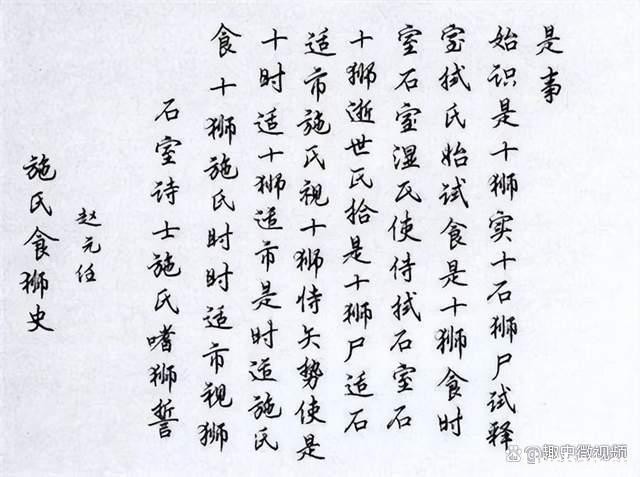 施氏食狮史
赵元任
石室诗士施氏嗜狮誓
食十狮施氏时时适市视狮
十时适十狮适市是时适施氏
适市施氏视十狮恃矢势使是
十狮逝世氏拾是十狮尸适石
室石室湿氏使侍拭石室石
室拭氏始试食是十狮食时
始识是十狮实十石狮尸试释
是事
@趣史微视频